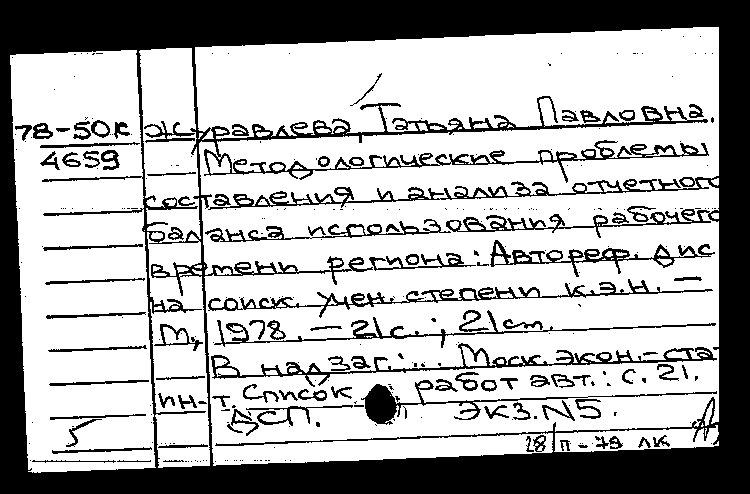 78-50к Журавлева, Татьяна Павловна.
4659 Методологические проблемы
составления и анализа отчетного
баланса использования рабочего
времени региона: Автореф. дис
на соиск. учен. степени к.э.н. —
М., 1978. — 21с.; 21cm.
В надзаг.: ... Моск. экон.-ста
ин-т. Список работ авт.: с. 21.
5 ДСП. Экз. N5.
28/II-79 ЛК